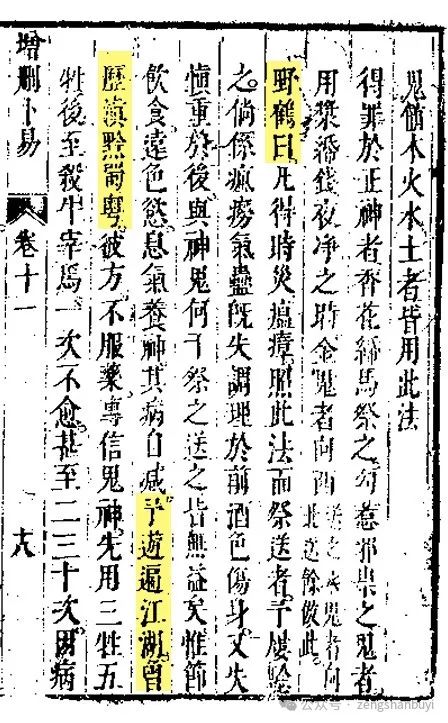 鬼値木火水土者皆用此法
得罪於正神者香花紙馬祭之勾惹邪祟之鬼者
用漿錢夜净之時金鬼者向西送之水鬼者向北送餘倣此
野鶴曰凡得時災瘟瘴照此法而祭送者予屡驗
之倘係瘋癆氣蠱旣失調理於前酒色傷身又失
慎重於後與神鬼何干祭之送之皆無益矣惟節
飲食遠色慾息氣養神其病自减予遊遍江湖曾
歷滇黔蜀粤彼方不服藥專信鬼神先用三牲五
牲後至殺牛宰馬一次不愈甚至二三十次因病
增删卜易
卷十一
十八
公众号 · zengshanbuyi